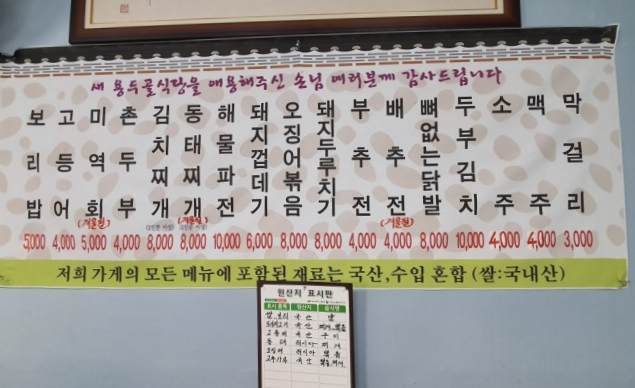 새 용두골식당을 애용해주신 손님 여러분께 감사드립니다
보리밥 5,000
고등어 4,000
미역회 (겨울철) 5,000
촌두부 4,000
김치찌개 (2인분 이상) 8,000
동태찌개 (겨울철) (2인분 이상) 8,000
해물파전 10,000
돼지껍데기 6,000
오징어볶음 8,000
돼지두루치기 8,000
부추전 4,000
배추전 (겨울철) 4,000
뼈없는닭발 8,000
두부김치 10,000
소주 4,000
맥주 4,000
막걸리 3,000
저희 가게의 모든 메뉴에 포함된 재료는 국산,수입 혼합 (쌀:국내산)
원산지 표시판
표시 품목 원산지 음식명
국산
국산
국산
러시아
러시아
국산